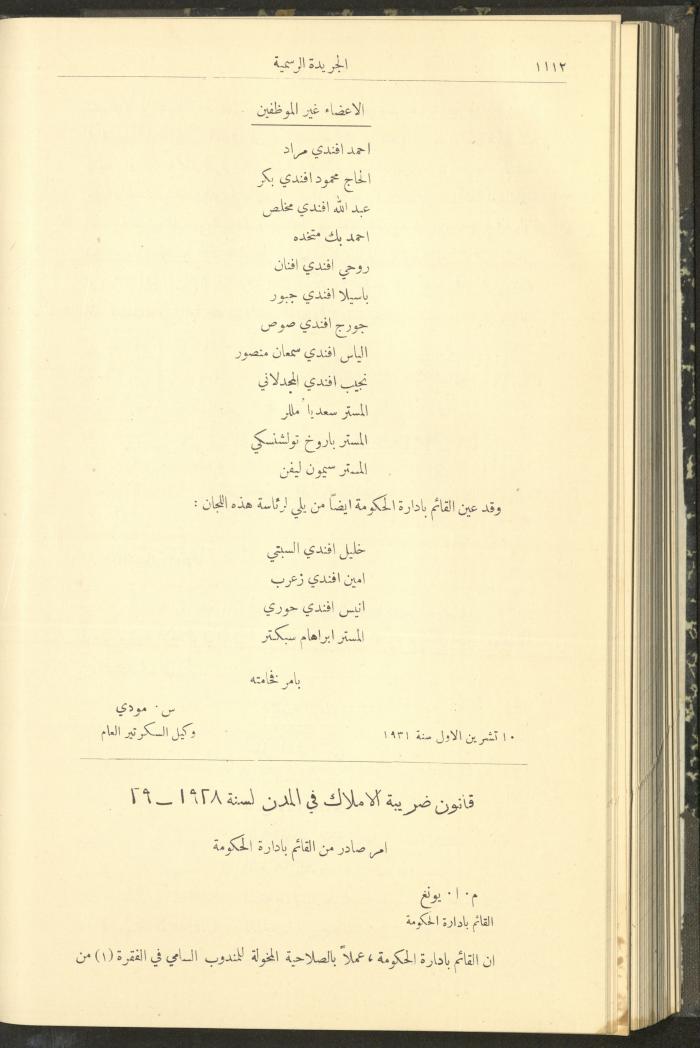 ١١١٢ الجريدة الرسمية
الاعضاء غير الموظفين
احمد افندي مراد
الحاج محمود افندي بكر
عبد الله افندي مخلص
احمد بك متخده
روحي افندي افنان
باسيلا افندي جبور
جورج افندي صوص
الياس افندي سمعان منصور
نجيب افندي المجدلاني
المستر سعديا مللر
المستر باروخ تولشنسكي
المستر سيمون ليفن
وقد عين القائم بادارة الحكومة ايضاً من يلي لرئاسة هذه اللجان :
خليل افندي السبتي
امين افندي زعرب
انيس افندي حوري
المستر ابراهام سبكتر
بامر فخامته
س · مودي
١٠ تشرين الاول سنة ١٩٣١ وكيل السكرتير العام
قانون ضريبة الاملاك في المدن لسنة ١٩٢٨ — ٢٩
امر صادر من القائم بادارة الحكومة
م · ا · يونغ
القائم بادارة الحكومة
ان القائم بادارة الحكومة ، عملاً بالصلاحية المخولة للمندوب السامي في الفقرة (١) من